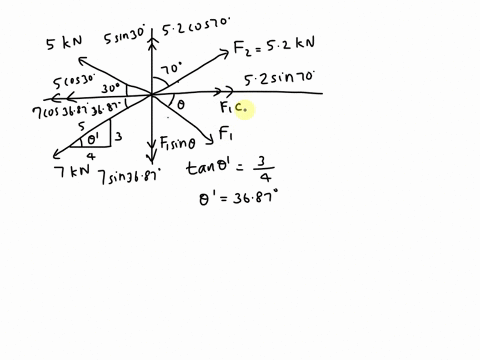 5 kN
5sin30°
5.2cos70°
F2 = 5.2 kN
5cos30°
30°
70°
5.2sin70°
7cos36.87°
36.87°
θ
F1 c.
5
3
θ'
4
F1sinθ
F1
7 kN
7sin36.87°
tanθ' = 3/4
θ' = 36.87°